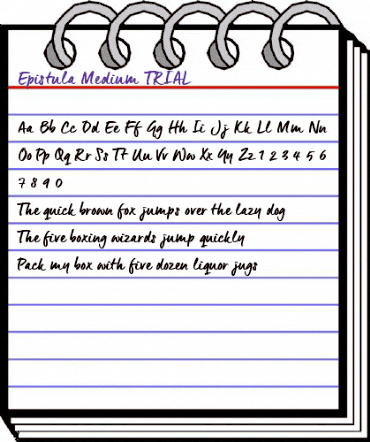 Epistula Medium TRIAL
Aa Bb Cc Dd Ee Ff Gg Hh Ii Jj Kk Ll Mm Nn
Oo Pp Qq Rr Ss Tt Uu Vv Ww Xx Yy Zz 1 2 3 4 5 6
7 8 9 0
The quick brown fox jumps over the lazy dog
The five boxing wizards jump quickly
Pack my box with five dozen liquor jugs